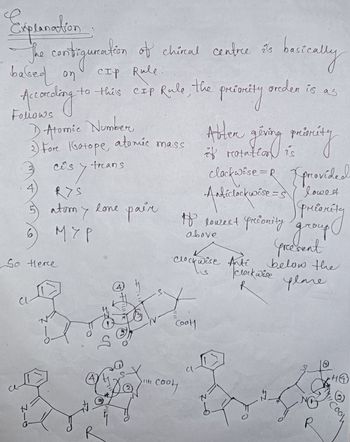 Explanation :
The configuration of chiral centre is basically
based on CIP Rule.
According to this CIP Rule, the priority order is as
Follows
1) Atomic Number
2) For Isotope, atomic mass
3) cis > trans
4) R > S
5) atom > lone pair
6) M > P
After giving priority
if rotation is
clockwise = R
Anticlockwise = S
provided
lowest
priority
group
present
below the
plane
If lowest priority
above
clockwise Anti
S clockwise
R
So Here
Cl
N
O
O
H
N
S
N
O
COOH
S
Cl
N
O
O
H
N
S
N
O
COOH
R
Cl
N
O
O
H
N
S
N
O
COOH
R